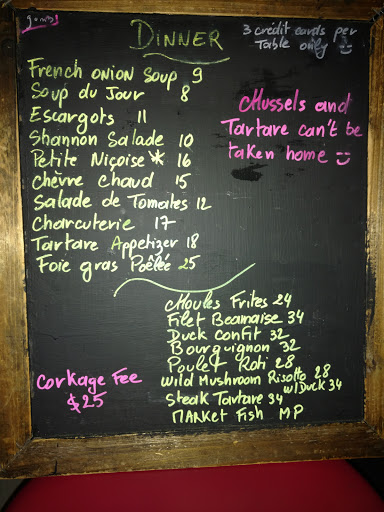 DINNER
3 credit cards per
Table only
French onion soup 9
Soup du Jour 8
Escargots 11
Shannon Salade 10
Petite Niçoise * 16
Chèvre Chaud 15
Salade de Tomates 12
Charcuterie 17
Tartare Appetizer 18
Foie gras Poêlée 25
Mussels and
Tartare can't be
taken home
Moules Frites 24
Filet Bearnaise 34
Duck Confit 32
Bourguignon 32
Poulet Roti 28
Wild Mushroom Risotto 28
w/Duck 34
Steak Tartare 34
Market Fish MP
Corkage Fee
$25